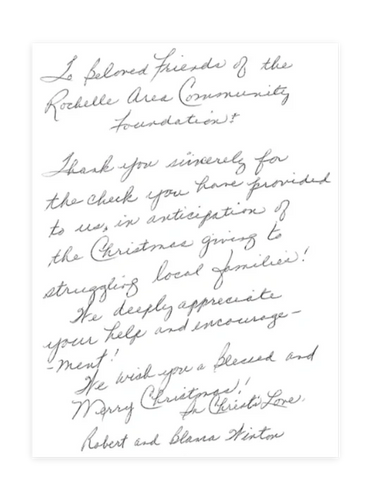 To Beloved Friends of the
Rochelle Area Community
Foundation!
Thank you sincerely for
the check you have provided
to us, in anticipation of
the Christmas giving to
struggling local families!
We deeply appreciate
your help and encourage-
-ment!
We wish you a Blessed and
Merry Christmas!
In Christ's Love,
Robert and Winton